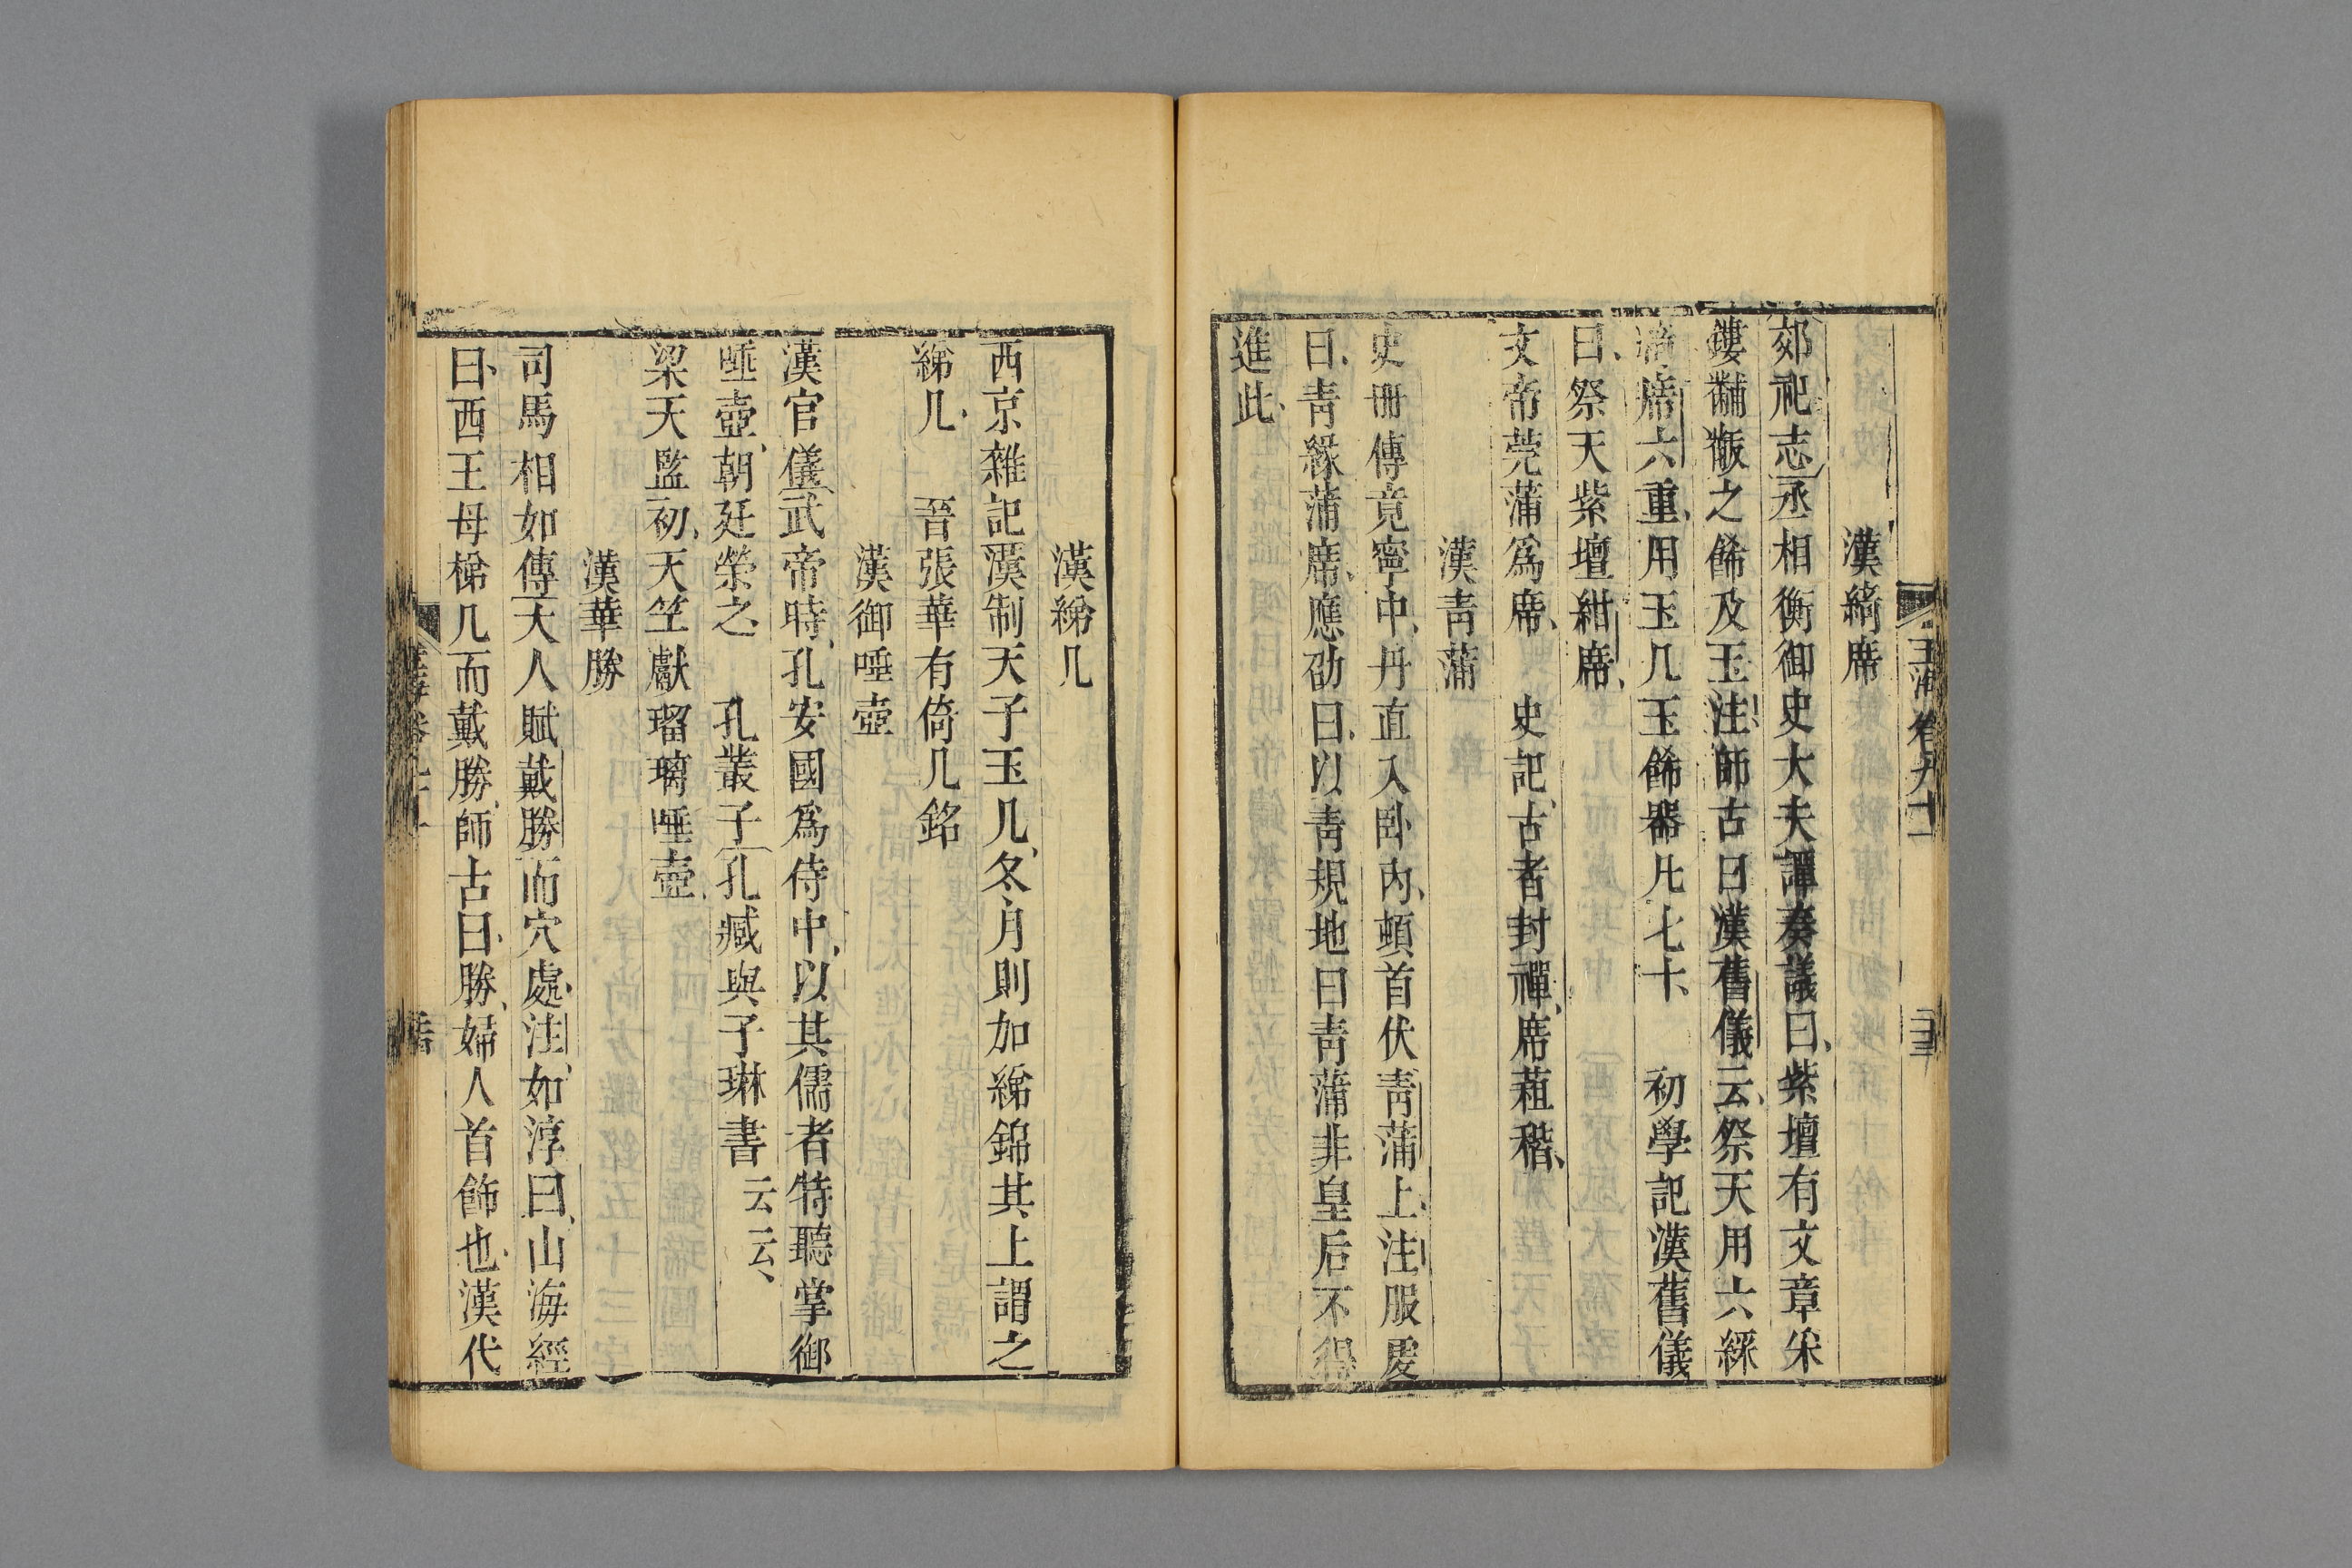 玉海卷九十一
漢綺席
郊祀志丞相衡御史大夫譚奏議曰紫壇有文章采
鏤黼黻之飾及玉注師古曰漢舊儀云祭天用六綵
綺席六重用玉几玉飾器凡七十 初學記漢舊儀
曰祭天紫壇紺席
文帝莞蒲爲席 史記古者封禪席葅稭
漢青蒲
史丹傳竟寧中丹直入卧内頓首伏青蒲上注服虔
曰青緣蒲席應劭曰以青規地曰青蒲非皇后不得
進此
漢綈几
西京雜記漢制天子玉几冬月則加綈錦其上謂之
綈几 晉張華有倚几銘
漢御唾壺
漢官儀武帝時孔安國爲侍中以其儒者特聽掌御
唾壺朝廷榮之 孔叢子孔臧與子琳書云云
梁天監初天竺獻瑠璃唾壺
漢華勝
司馬相如傳大人賦戴勝而穴處注如淳曰山海經
曰西王母梯几而戴勝師古曰勝婦人首飾也漢代